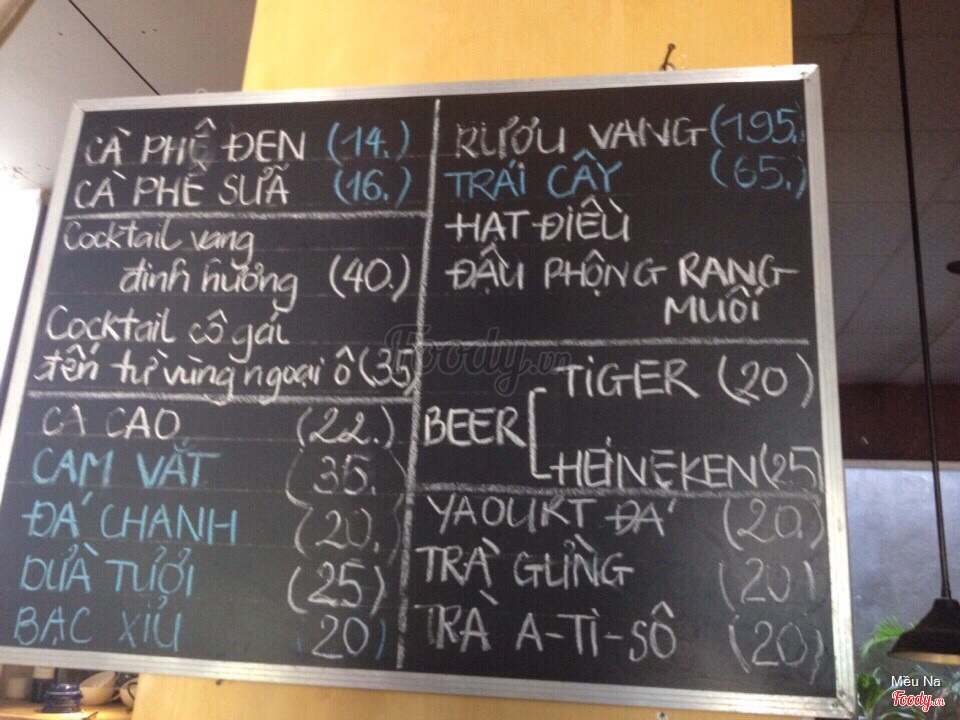 CÀ PHÊ ĐEN (14.)
CÀ PHÊ SỮA (16.)
Cocktail vang
đinh hương (40.)
Cocktail cô gái
đến từ vùng ngoại ô (35)
CA CAO (22.)
CAM VẮT (35.
ĐÁ CHANH (20.)
DỪA TƯƠI (25)
BẠC XỈU (20)
RƯỢU VANG (195.)
TRÁI CÂY (65.)
HẠT ĐIỀU
ĐẬU PHỘNG RANG
MUỐI
BEER
TiGER (20)
HEINEKEN (25)
YAOURT ĐÁ (20.)
TRÀ GỪNG (20)
TRÀ A-TI-SÔ (20)
Foody.vn
Mều Na
Foody.vn